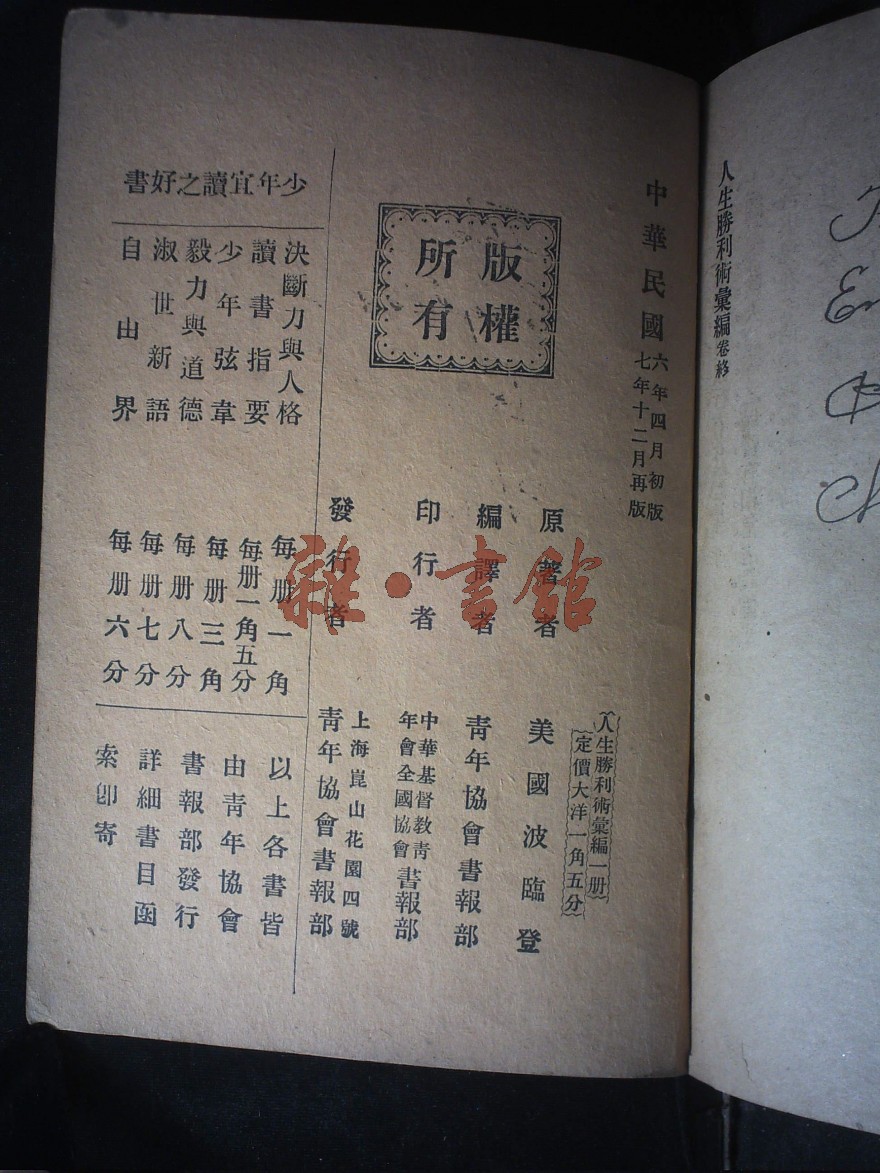 人生勝利術彙編卷終
中華民國六年四月初版
七年十二月再版
人生勝利術彙編一册
定價大洋一角五分
版權
所有
原著者 美國波臨登
編譯者 青年協會書報部
印行者 中華基督教青年會全國協會書報部
發行者 上海崑山花園四號
青年協會書報部
少年宜讀之好書
決斷力與人格 每册一角
讀書指要 每册一角五分
少年弦韋 每册三角
毅力與道德 每册八分
淑世新語 每册七分
自由界 每册六分
以上各書皆
由青年協會
書報部發行
詳細書目函
索卽寄
雜·書館